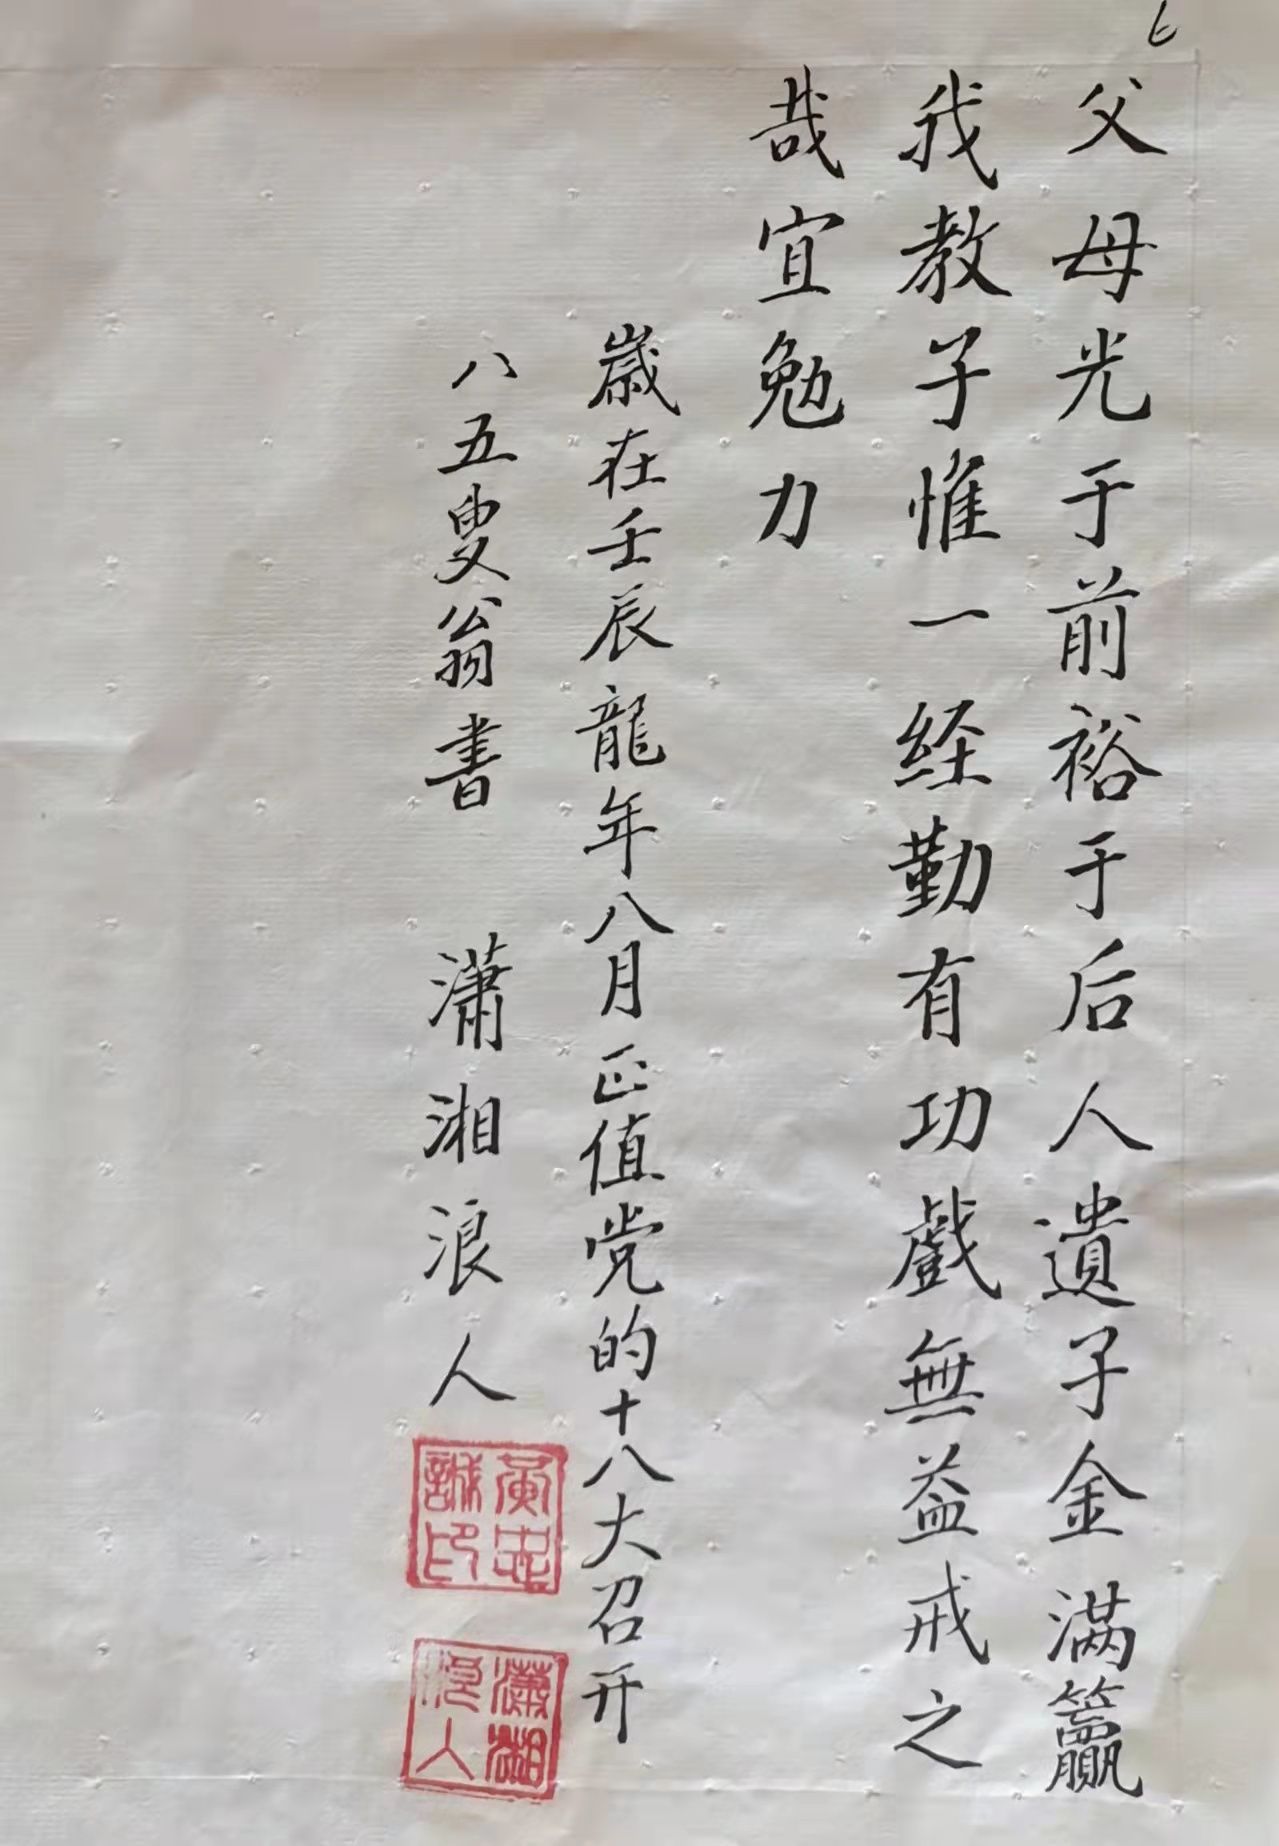 父母光于前裕于后人遺子金滿籯
我教子惟一经勤有功戲無益戒之
哉宜勉力
歲在壬辰龍年八月正值党的十八大召开
八五叟翁書 瀟湘浪人
黃忠誠印
瀟湘浪人